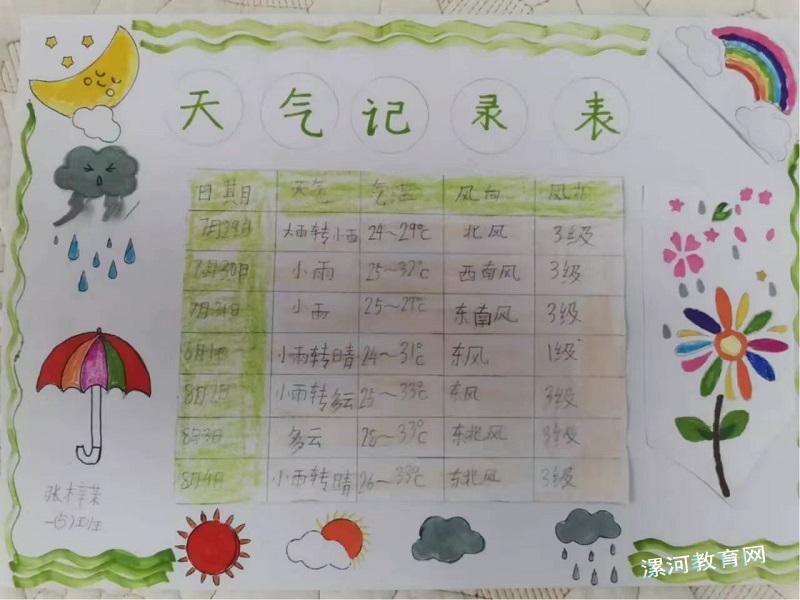 天气记录表
日期 天气 气温 风向 风力
7月29日 大雨转小雨 24~29℃ 北风 3级
7月30日 小雨 25~32℃ 西南风 3级
7月31日 小雨 25~29℃ 东南风 3级
8月1日 小雨转晴 24~31℃ 东风 1级
8月2日 小雨转多云 25~33℃ 东风 3级
8月3日 多云 28~33℃ 东北风 3级
8月4日 小雨转晴 26~33℃ 东北风 3级
一(5)班
漯河教育网